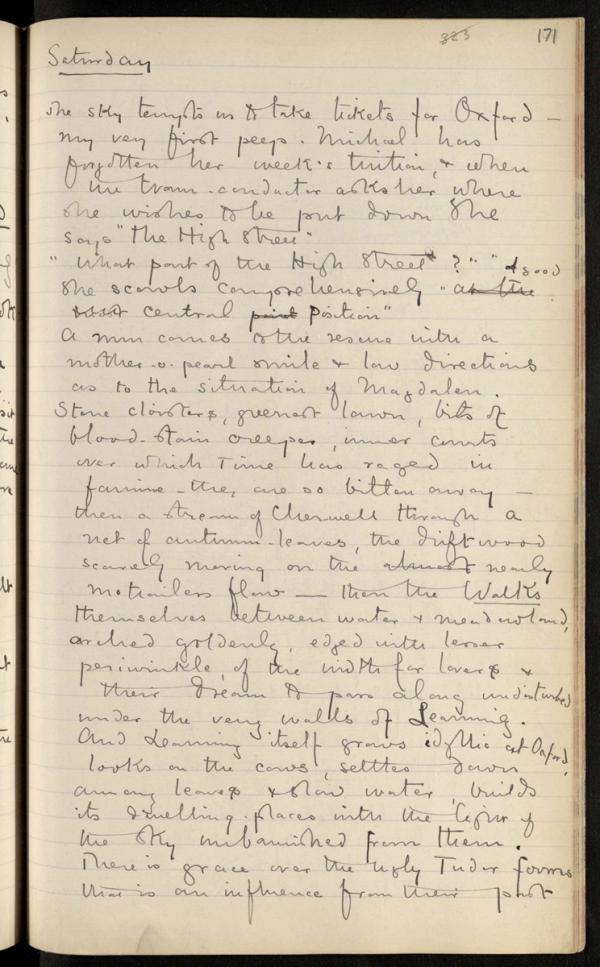 323 171
Saturday
The sky tempts us to take tickets for Oxford —
my very first peep. Michael has
forgotten her week's tuition, & when
the tram-conductor asks her where
she wishes to be put down she
says "the High Street"
"What part of the High Street" ?" "A good
She scowls comprehensively "at the
central point position"
A nun comes to the rescue with a
mother-o-pearl smile & low directions
as to the situation of Magdalen.
Stone cloisters, greenest lawn, bits of
blood-stain creeper, inner courts
over which Time has raged in
famine – they are so bitten away —
then a stream of Cherwell through a
net of autumn-leaves, the driftwood
scarcely moving on the almost nearly
motionless flow — then the Walks
themselves between water & meadowland,
arched goldenly, edged with lesser
periwinkle, of the width for lovers &
their dream to pass along undisturbed
under the very walls of Learning.
And Learning itself grows idyllic at Oxford,
looks on the cows, settles down
among leaves & slow water, builds
its dwelling-places with the light of
the sky unbanished from them.
There is grace over the ugly Tudor forms
that is an influence from their past